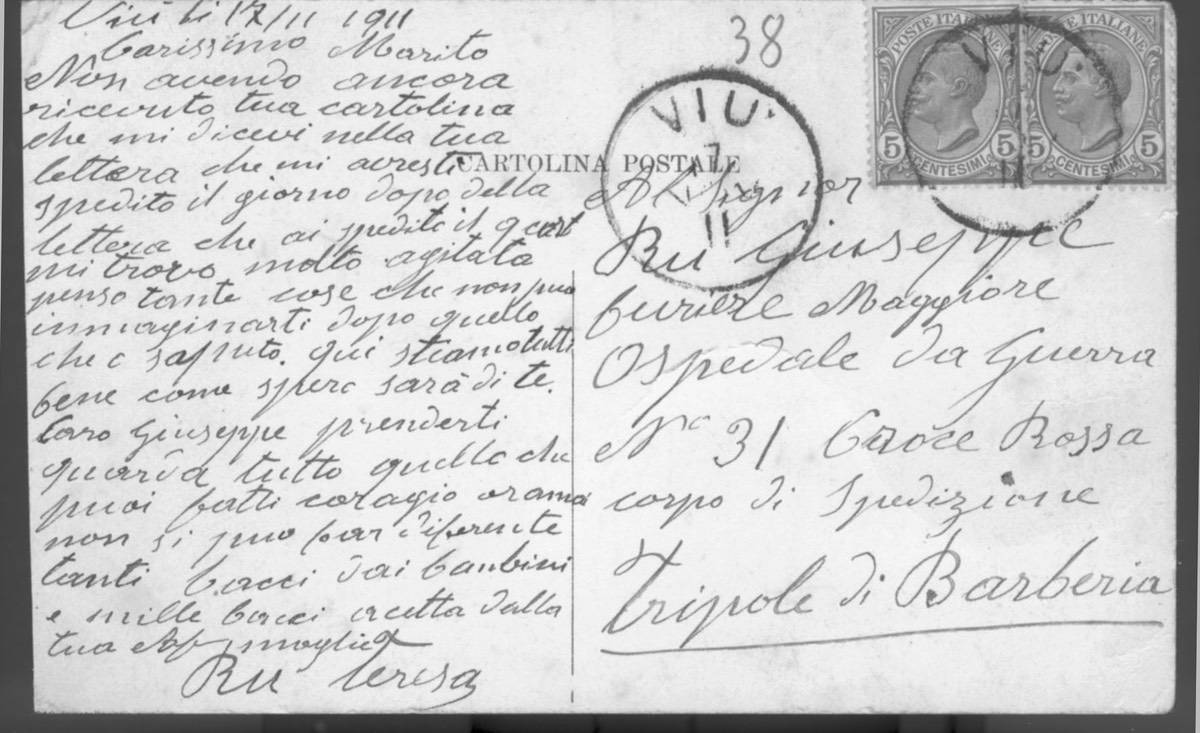 Viù li 17/11 1911
Carissimo Marito
Non avendo ancora
ricevuto tua cartolina
che mi dicevi nella tua
lettera che mi avresti
spedito il giorno dopo della
lettera che ai spedito il
mi trovo molto agitata
penso tante cose che non puoi
immaginarti dopo quello
che o saputo. qui stiamo tutti
bene come spero sarà di te.
Caro Giuseppe prenderti
guarda tutto quello che
puoi fatti coragio oramai
non si può far diferente
tanti bacci dai bambini
e mille bacci acetta dalla
tua moglie
Ru Teresa
38
CARTOLINA POSTALE
VIU'
11
POSTE ITALIANE
5 5
CENTESIMI
POSTE ITALIANE
5 5
CENTESIMI
VIU'
11
Al Signor
Ru Giuseppe
furiere Maggiore
Ospedale da Guerra
No 31 Croce Rossa
corpo di Spedizione
Tripole di Barberia